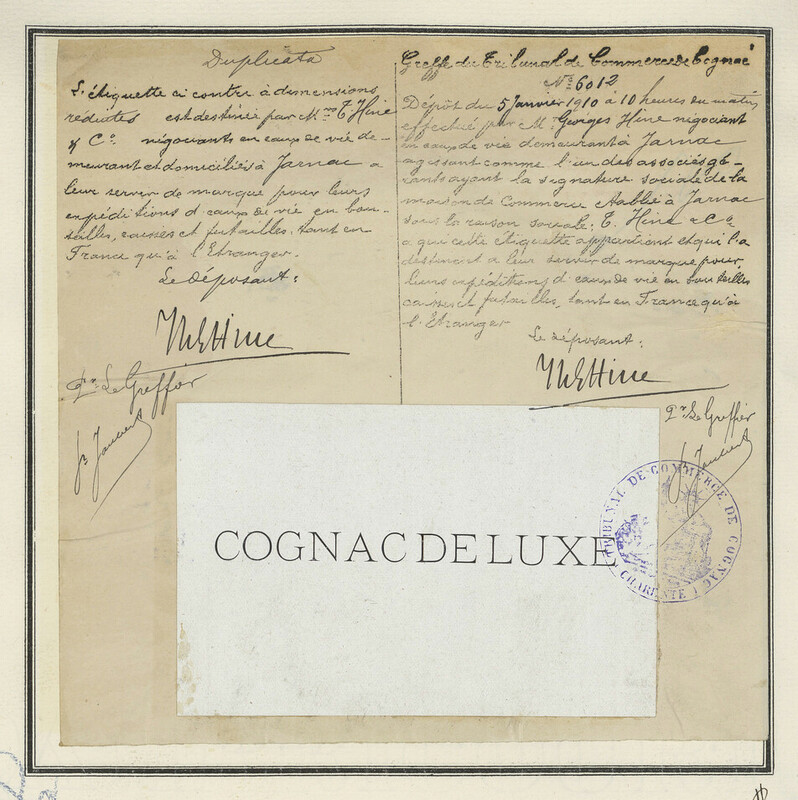 Duplicata
L'étiquette ci contre à dimensions
réduites est destinée par Mrs T. Hine
& Co. négociants en eaux de vie de-
meurant et domiciliés à Jarnac a
leur servir de marque pour leurs
expéditions d'eaux de vie en bou-
teilles, caisses et futailles, tant en
France qu'à l'Etranger.
Le déposant:
Pr Le Greffier
Greffe du Tribunal de Commerce de Cognac
No 6012
Dépôt du 5 Janvier 1910 à 10 heures du matin
effectué par Mr Georges Hine négociant
en eaux de vie demeurant à Jarnac
agissant comme l'un des associés gé-
rants ayant la signature sociale de la
maison de Commerce établie à Jarnac
sous la raison sociale: T. Hine & Co
a qui cette étiquette appartient et qui l'a
destinent a leur servir de marque pour
leurs expéditions d'eaux de vie en bouteilles
caisses et futailles, tant en France qu'à
l'Etranger
Le déposant:
Pr Le Greffier
COGNAC DE LUXE
TRIBUNAL DE COMMERCE DE COGNAC
CHARENTE